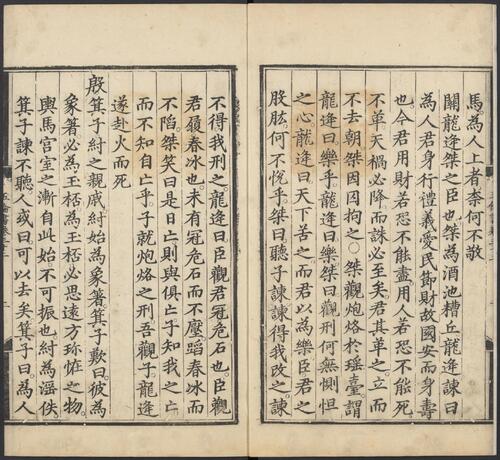 馬為人上者柰何不敬
關龍逄桀之臣也桀為酒池糟丘龍逄諫曰
為人君身行禮義愛民節財故國安而身壽
也今君用財若恐不能盡用人若恐不能死
不革天禍必降而誅必至矣君其革之立而
不去朝桀因囚拘之○桀觀炮烙於瑤臺謂
龍逄曰樂乎龍逄曰樂桀曰觀刑何無惻怛
之心龍逄曰天下苦之而君以為樂臣君之
股肱何不悅乎桀曰聽子諫諫得我改之諫
不得我刑之龍逄曰臣觀君冠危石也臣觀
君履春冰也未有冠危石而不壓蹈春冰而
不陷桀笑曰是日亡則與俱亡子知我之亡
而不知自亡乎子就炮烙之刑吾觀子龍逄
遂赴火而死
殷箕子紂之親戚紂始為象箸箕子歎曰彼為
象箸必為玉桮為玉桮必思遠方珍恠之物
輿馬宮室之漸自此始不可振也紂為滛佚
箕子諫不聽人或曰可以去矣箕子曰為人